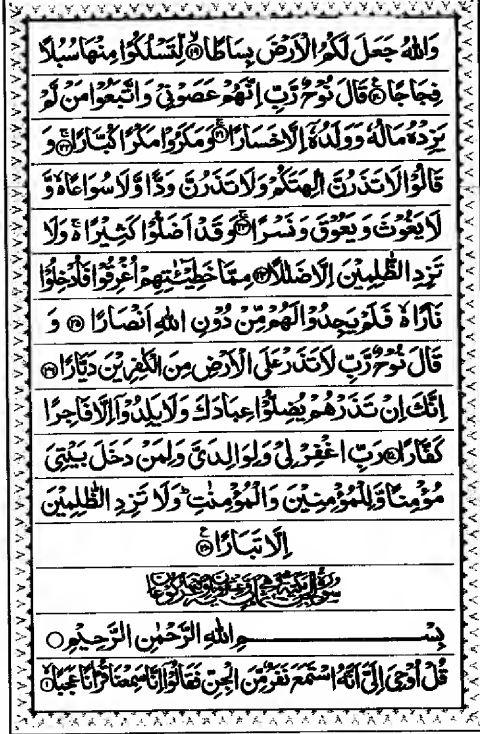 وَاللّٰهُ جَعَلَ لَكُمُ الْاَرْضَ بِسَاطًا ۙ﴿۱۹﴾ لِّتَسْلُكُوْا مِنْهَا سُبُلًا
فِجَاجًا ۧ﴿۲۰﴾ قَالَ نُوْحٌ رَّبِّ اِنَّهُمْ عَصَوْنِيْ وَاتَّبَعُوْا مَنْ لَّمْ
يَزِدْهُ مَالُهٗ وَوَلَدُهٗۤ اِلَّا خَسَارًا ۚ﴿۲۱﴾ وَمَكَرُوْا مَكْرًا كُبَّارًا ۚ﴿۲۲﴾ وَ
قَالُوْا لَا تَذَرُنَّ اٰلِهَتَكُمْ وَلَا تَذَرُنَّ وَدًّا وَّلَا سُوَاعًا ۙ وَّ
لَا يَغُوْثَ وَيَعُوْقَ وَنَسْرًا ۚ﴿۲۳﴾ وَقَدْ اَضَلُّوْا كَثِيْرًا ۚ وَلَا
تَزِدِ الظّٰلِمِيْنَ اِلَّا ضَلٰلًا ﴿۲۴﴾ مِمَّا خَطِيْٓـٰٔتِهِمْ اُغْرِقُوْا فَاُدْخِلُوْا
نَارًا ۙ فَلَمْ يَجِدُوْا لَهُمْ مِّنْ دُوْنِ اللّٰهِ اَنْصَارًا ﴿۲۵﴾ وَ
قَالَ نُوْحٌ رَّبِّ لَا تَذَرْ عَلَى الْاَرْضِ مِنَ الْكٰفِرِيْنَ دَيَّارًا ﴿۲۶﴾
اِنَّكَ اِنْ تَذَرْهُمْ يُضِلُّوْا عِبَادَكَ وَلَا يَلِدُوْۤا اِلَّا فَاجِرًا
كَفَّارًا ﴿۲۷﴾ رَبِّ اغْفِرْ لِيْ وَلِوَالِدَيَّ وَلِمَنْ دَخَلَ بَيْتِيَ
مُؤْمِنًا وَّلِلْمُؤْمِنِيْنَ وَالْمُؤْمِنٰتِ ؕ وَلَا تَزِدِ الظّٰلِمِيْنَ
اِلَّا تَبَارًا ۧ﴿۲۸﴾
بِسْمِ اللّٰهِ الرَّحْمٰنِ الرَّحِيْمِ ○
قُلْ اُوْحِيَ اِلَيَّ اَنَّهُ اسْتَمَعَ نَفَرٌ مِّنَ الْجِنِّ فَقَالُوْۤا اِنَّا سَمِعْنَا قُرْاٰنًا عَجَبًا ۙ﴿۱﴾